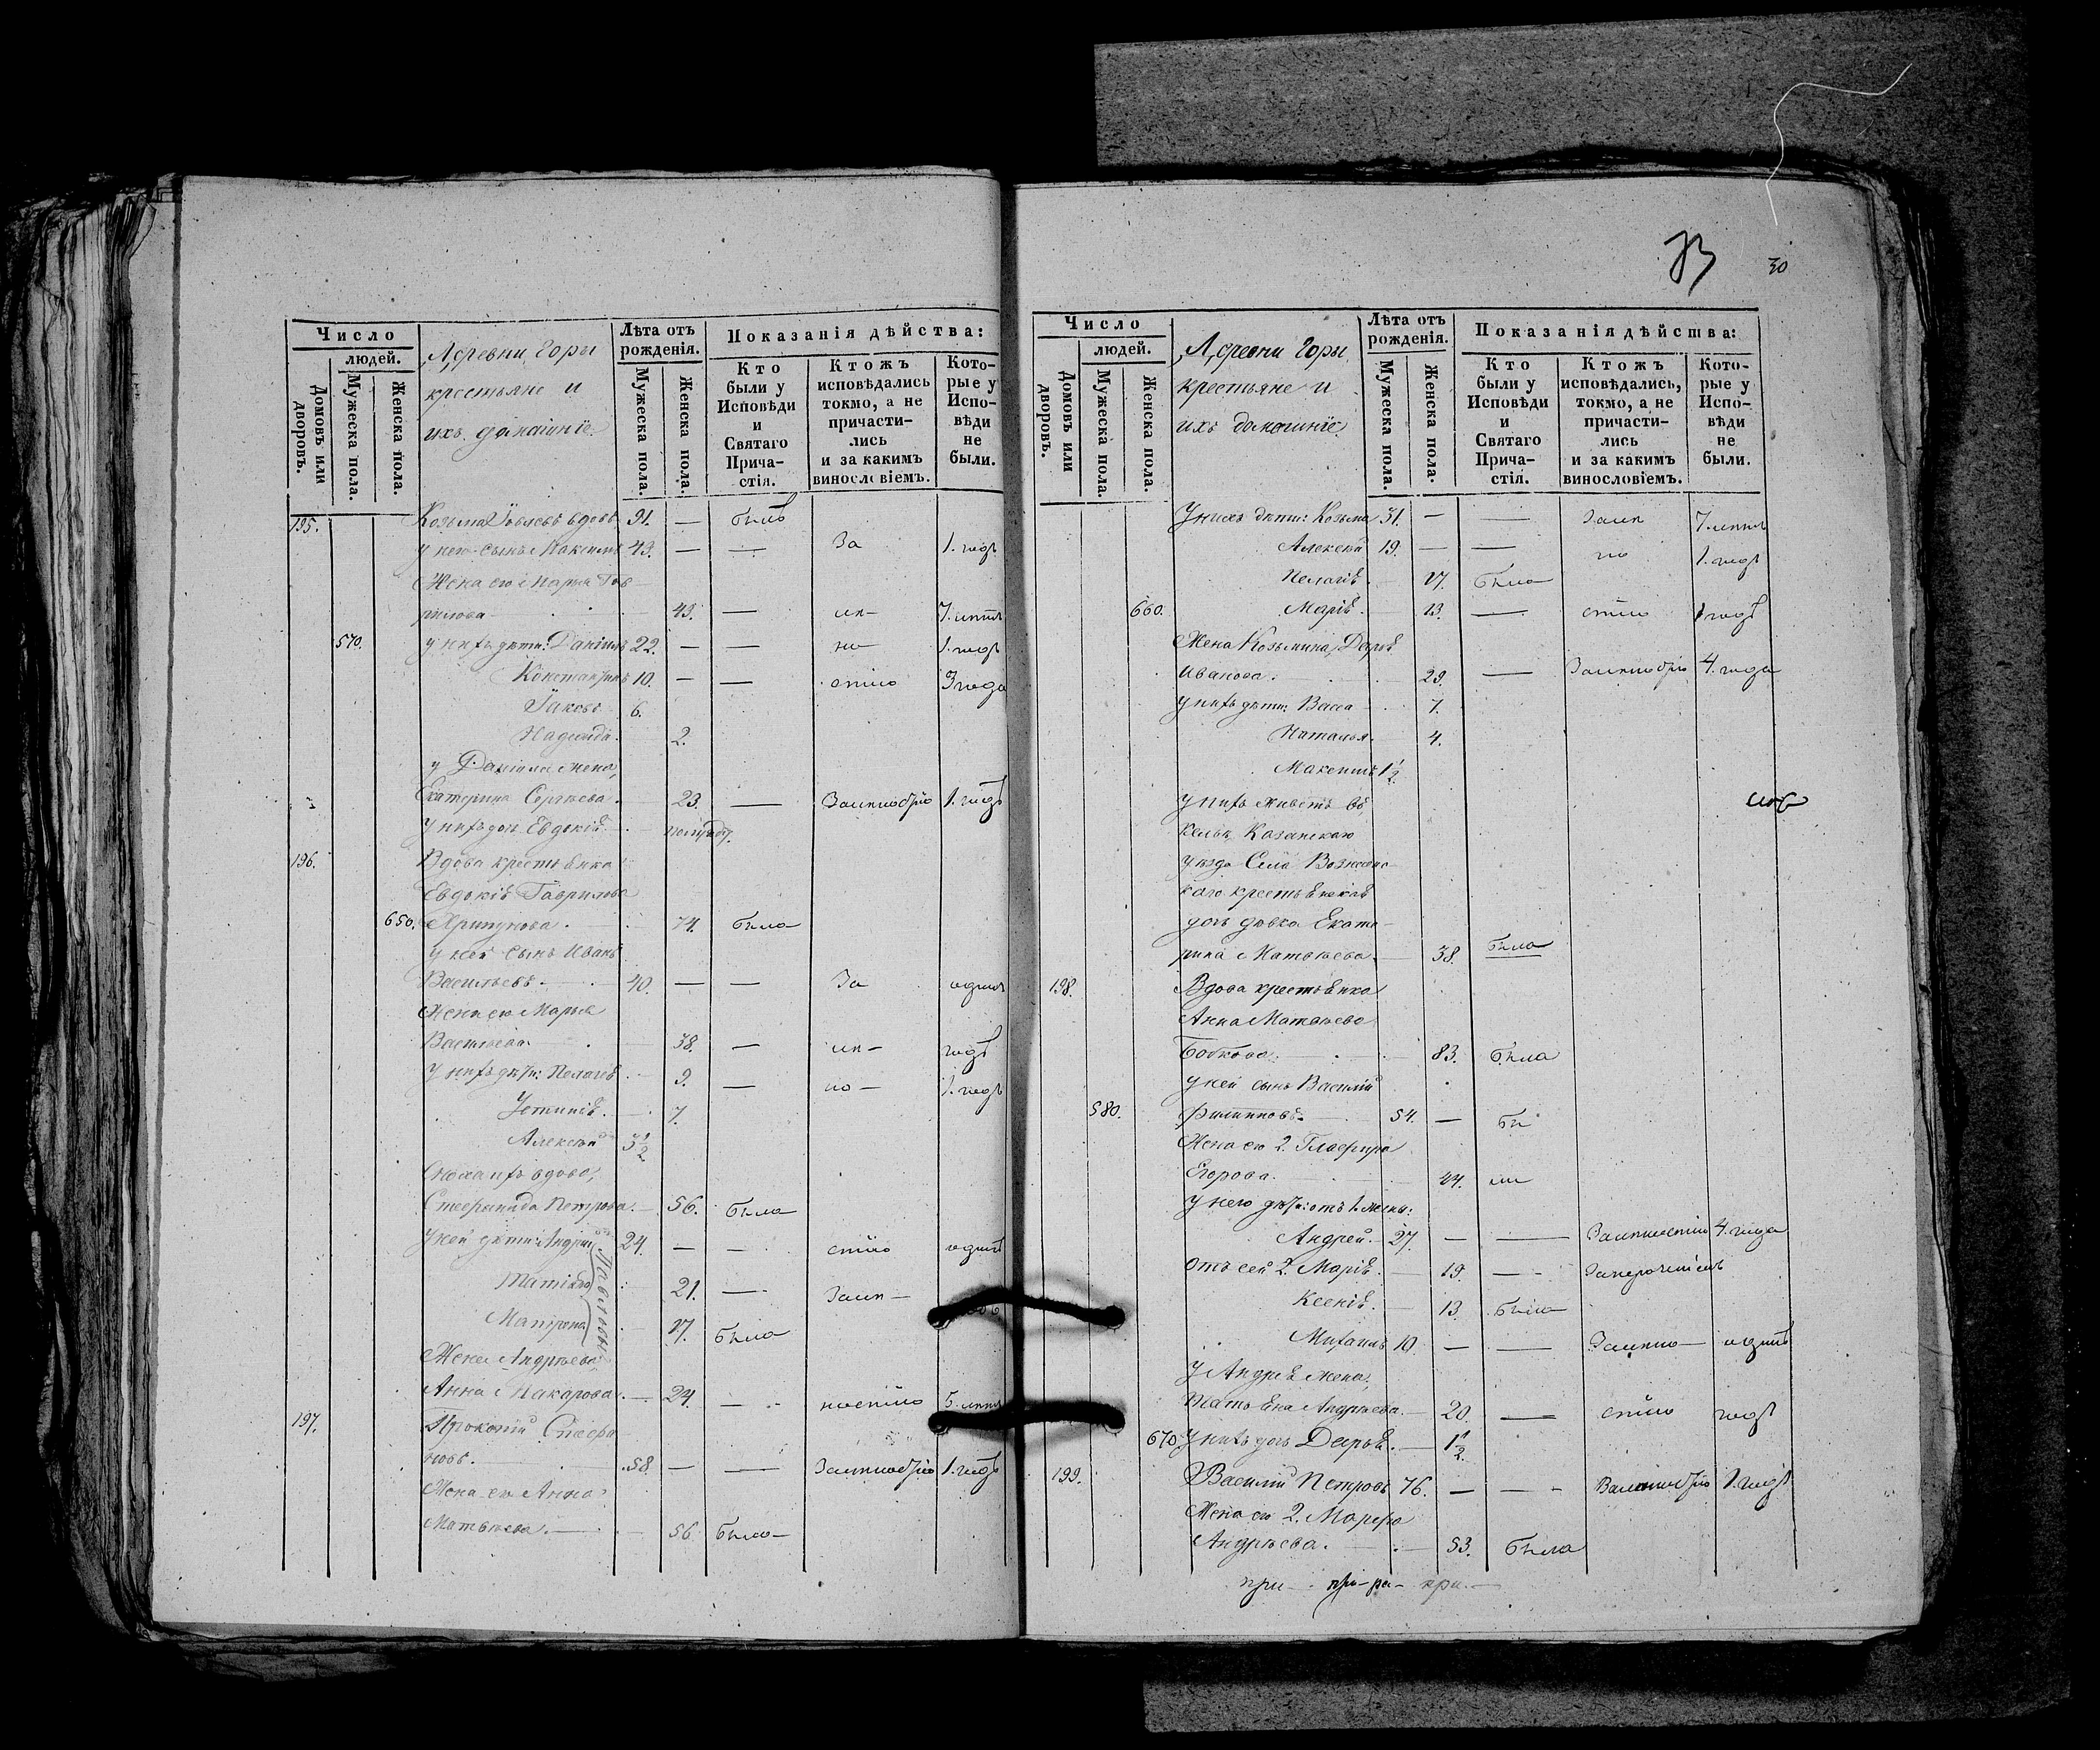 Число
людей.
Домовъ или дворовъ.
Мужеска пола.
Женска пола.
Деревни Горы
крестьяне и
ихъ домашніе
Лѣта отъ рожденія.
Мужеска пола.
Женска пола.
Показанія дѣйства:
Кто были у Исповѣди и Святаго Прича-стія.
Ктожъ исповѣдались токмо, а не причасти-лись и за какимъ винословіемъ.
Кото-рые у Испо-вѣди не были.
195. Козьма Іовлевъ вдовъ 91. — былъ
у него сынъ Максимъ 43. — — За 1. годъ
Жена его Марья Гав-
рилова 43. — 7. лѣтъ
570. у нихъ дѣти: Даніилъ 22. — — 1. годъ
Константинъ 10. — — 3 года
Іаковъ 6.
Надежда 2.
у Даніила жена,
Екатерина Сергѣева. 23. — 1. годъ
у нихъ дочь Евдокія
196. Вдова крестьянка
Евдокія Гаврилова
650. Хрипунова. 74. была
у ней сынъ Иванъ
Васильевъ. 40. — — За одинъ
Жена его Марья
Васильева. 38. — годъ
у нихъ дѣти: Пелагія 9. — 1. годъ
Устинія. 7.
Алексѣй 3 1/2
Сноха ихъ вдова,
Стефанида Петрова. 56. была
у ней дѣти: Андрей 24. — — одинъ
21. —
Матрона 17. была
Жена Андрѣева
Анна Макарова. 24. — 5. лѣтъ
197. Прокопій Стефа
новъ. 58. — — 1. годъ
Жена его Анна
Матвѣева. 56 была
30
Число
людей.
Домовъ или дворовъ.
Мужеска пола.
Женска пола.
Деревни Горы
крестьяне и
ихъ домашніе
Лѣта отъ рожденія.
Мужеска пола.
Женска пола.
Показанія дѣйства:
Кто были у Исповѣди и Святаго Прича-стія.
Ктожъ исповѣдались, токмо, а не причасти-лись и за какимъ винословіемъ.
Кото-рые у Испо-вѣди не были.
У нихъ дѣти: Козьма 31. — — 7. лѣтъ
Алексѣй 19. — — 1. годъ
Пелагія. 17. была
660. Марія. 13. — годъ
Жена Козьмина, Дарья
Иванова. 29. — 4. года
у нихъ дѣти: Васса 7.
Наталья. 4.
Максимъ 1 1/2
у нихъ живетъ въ
кельи, Казанскаго
уѣзда Села Вознесенс
каго крестьянская
дочь дѣвка Екате-
рина Матвѣева. 38. была
198. Вдова крестьянка
Анна Матвѣева
Бобкова. 83. была
у ней сынъ Василій
580. Филиповъ. 54. —
Жена его 2. Глафира
Егорова.
у него дѣти: отъ 1. жены:
Андрей. 27. — — 4. года
Отъ сей 2. Марія. 19. —
Ксенія. 13. была
Михаилъ 10 — — одинъ
У Андрея жена,
Татьяна Андрѣева. 20. — годъ
670 у нихъ дочь Дарья. 1 1/2
199. Василій Петровъ 76. — — 1. годъ
Жена его 2. Марфа
Андрѣева. 53. была